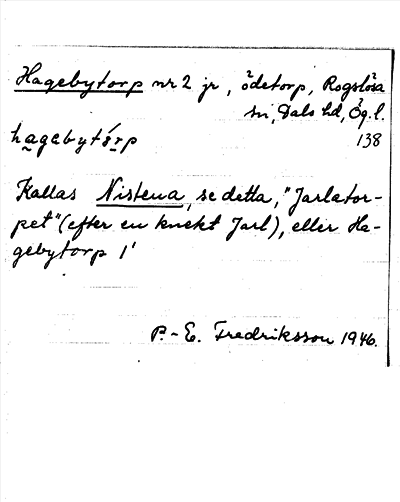 Hagebytorp nr 2 jr, ödetorp, Rogslösa
sn, Dals hd, Ög. l.
hagebytórp 138
Kallas Nistena, se detta, "Jarlator-
pet" (efter en knekt Jarl), eller Ha-
gebytorp 1'
P.-E. Fredriksson 1946.